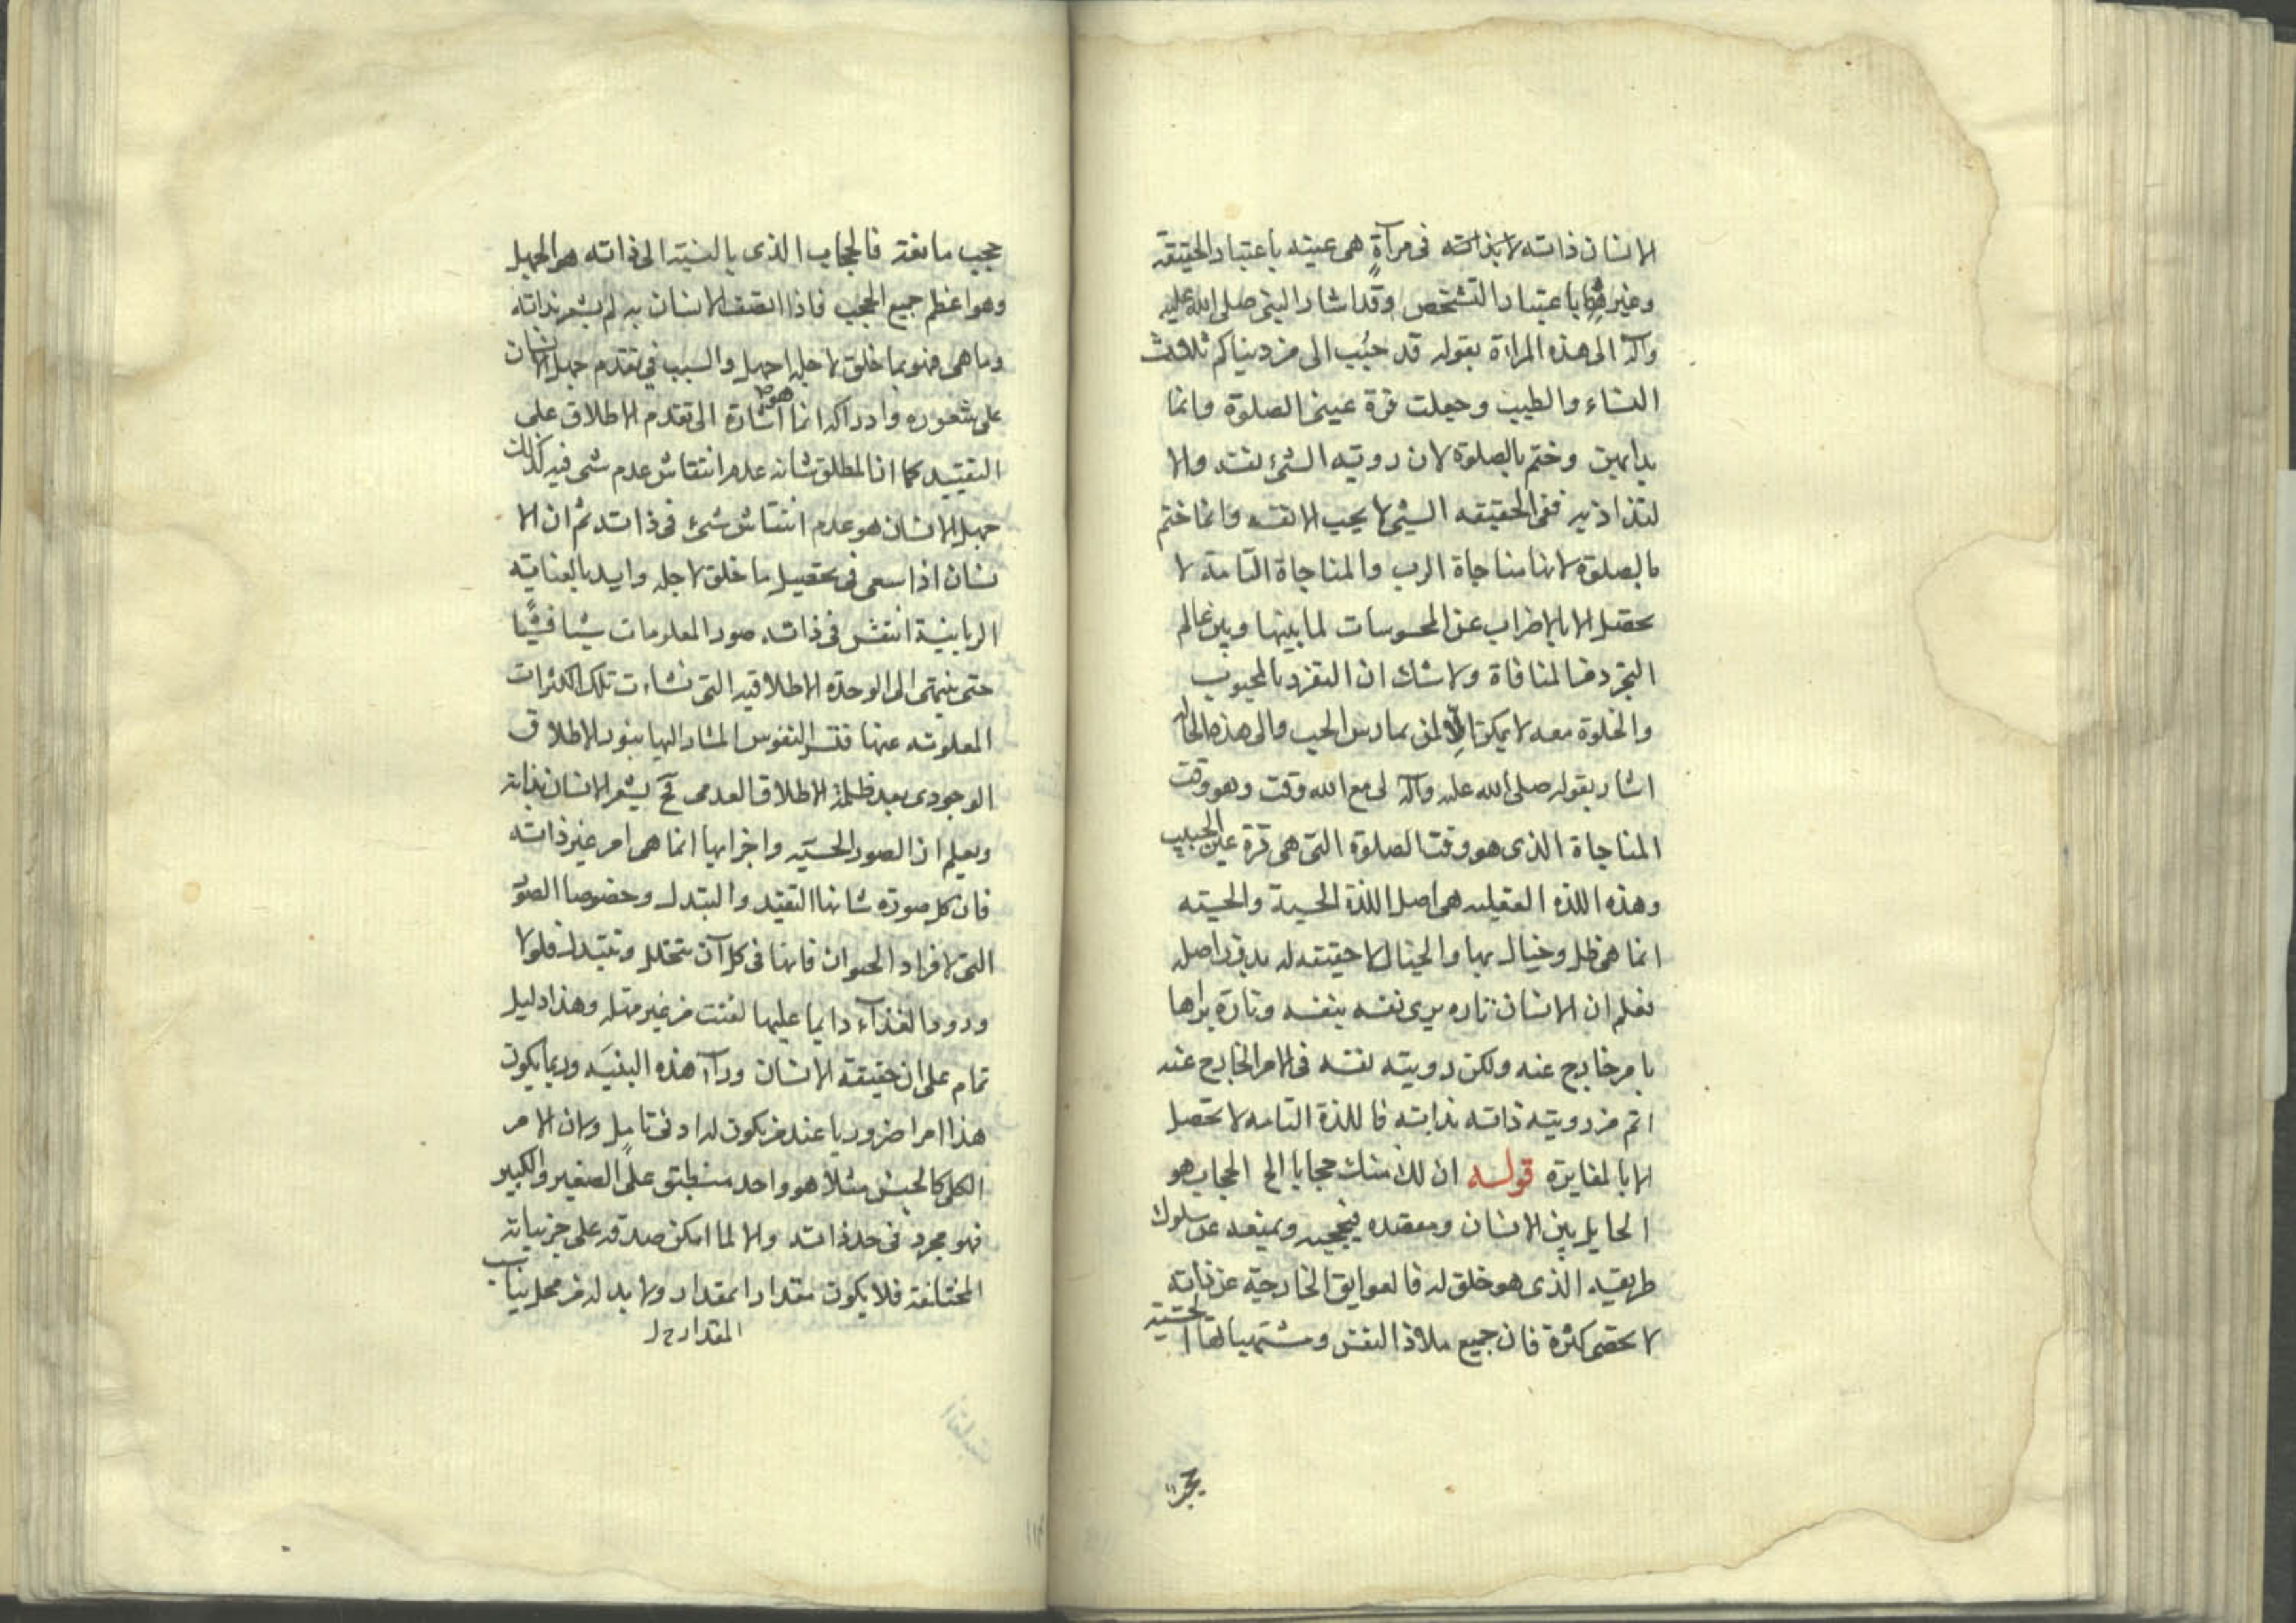 الانسان ذاته لا بذاته فى مرآةٍ هى عينه باعتبار الحقيقة
وغيرها باعتبار التشخص وقد اشار النبى صلى الله عليه
وآله الى هذه المراءة بقوله قد حُبّب الى من دنياكم ثلاث
النساء والطيب وجعلت قرة عينى الصلوة وانما
بدابهن وختم بالصلوة لان رويته الشئ نفسه والا
لتذاذ به ففى الحقيقه الشئ لا يحب الا نفسه وانما ختم
بالصلوة لانها مناجاة الرب والمناجاة التامة لا
تحصل الا بالاضراب عن المحسوسات لما بينها وبين عالم
التجرد من المنافاة ولا شك ان التفرد بالمحبوب
والخلوة معه لا يمكن الّا لمن يمارس الحب والى هذه الحال
اشار بقوله صلى الله عليه وآله لى مع الله وقت وهو وقت
المناجاة الذى هو وقت الصلوة التى هى قرة عين الحبيب
وهذه اللذه العقليه هى اصل اللذة الحسية والحسيه
انما هى ظل وخيال بها والخيال لا حقيقه له بدون اصله
فعلم ان الانسان تاره يرى نفسه بنفسه وتارة يراها
بامر خارج عنه ولكن رويته نفسه فى الامر الخارج عنه
اتم من رويته ذاته بذاته فاللذة التامه لا تحصل
الا بالمغايرة قوله ان لك منك حجابا الخ الحجاب هو
الحايل بين الانسان ومقصده فيحجبه ويمنعه عن سلوك
طريقه الذى هو خلق له فالعوايق الخارجية عن ذاته
لا تحصى كثرة فان جميع ملاذ النفس ومشتهياتها الحسّيّه
حجب
حجب مانعة فالحجاب الذى بالنسبة الى ذاته هو الجهل
وهو اعظم جميع الحجب فاذا اتصف الانسان به لم يشعر بذاته
وما هى فهو بما خلق لاجله اجهل والسبب فى تقدم جهل الانسان
على شعوره وادراكه انما هو اشارة الى تقدم الاطلاق على
التقييد كما ان المطلق شانه عدم انتقاش عدم شى فيه كذلك
جهل الانسان هو عدم انتقاش شئ فى ذاته ثم ان الا
نسان اذا سعى فى تحصيل ما خلق لاجله وايد بالعنايه
الربانية انتقش فى ذاته صور المعلومات شيا فشيًا
حتى ينتهى الى الوحدة الاطلاقيه التى نشاءت تلك الكثرات
المعلومه عنها النفوس المشار اليها بنور الاطلاق
الوجودى بعد ظلمة الاطلاق العدمى فح يشعر الانسان بذاته
ويعلم ان الصور الحسّيه واجزايها انما هى امر غير ذاته
فان كل صورة شانها التقيد والتبدل وخصوصا الصور
التى لافراد الحيوان فانها فى كل آن تتحلل وتتبدل فلولا
ورود الغذآء دايما عليها لفنت من غير مهلة وهذا دليل
تمام على ان حقيقة الانسان ورآء هذه البنيَه وربما يكون
هذا امرا ضروريا عند من يكون له ادنى تامل ولان الامر
الكلى كالجنس مثلا هو واحد منطبق على الصغير والكبير
فهو مجرد فى حد ذاته والا لما امكن صدقه على جزئياته
المختلفة فلا يكون مقدارا بمقدار ولا بد له من محل يناسب
المقدار